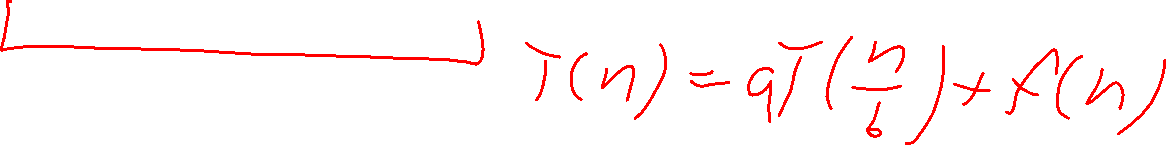 T(n) = aT(n/b) + f(n)